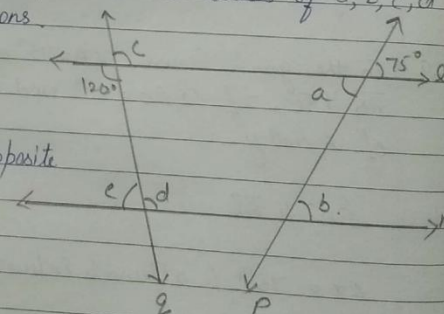 ons.
of
c
120°
75°
a
posite
e
d
b.
q
p